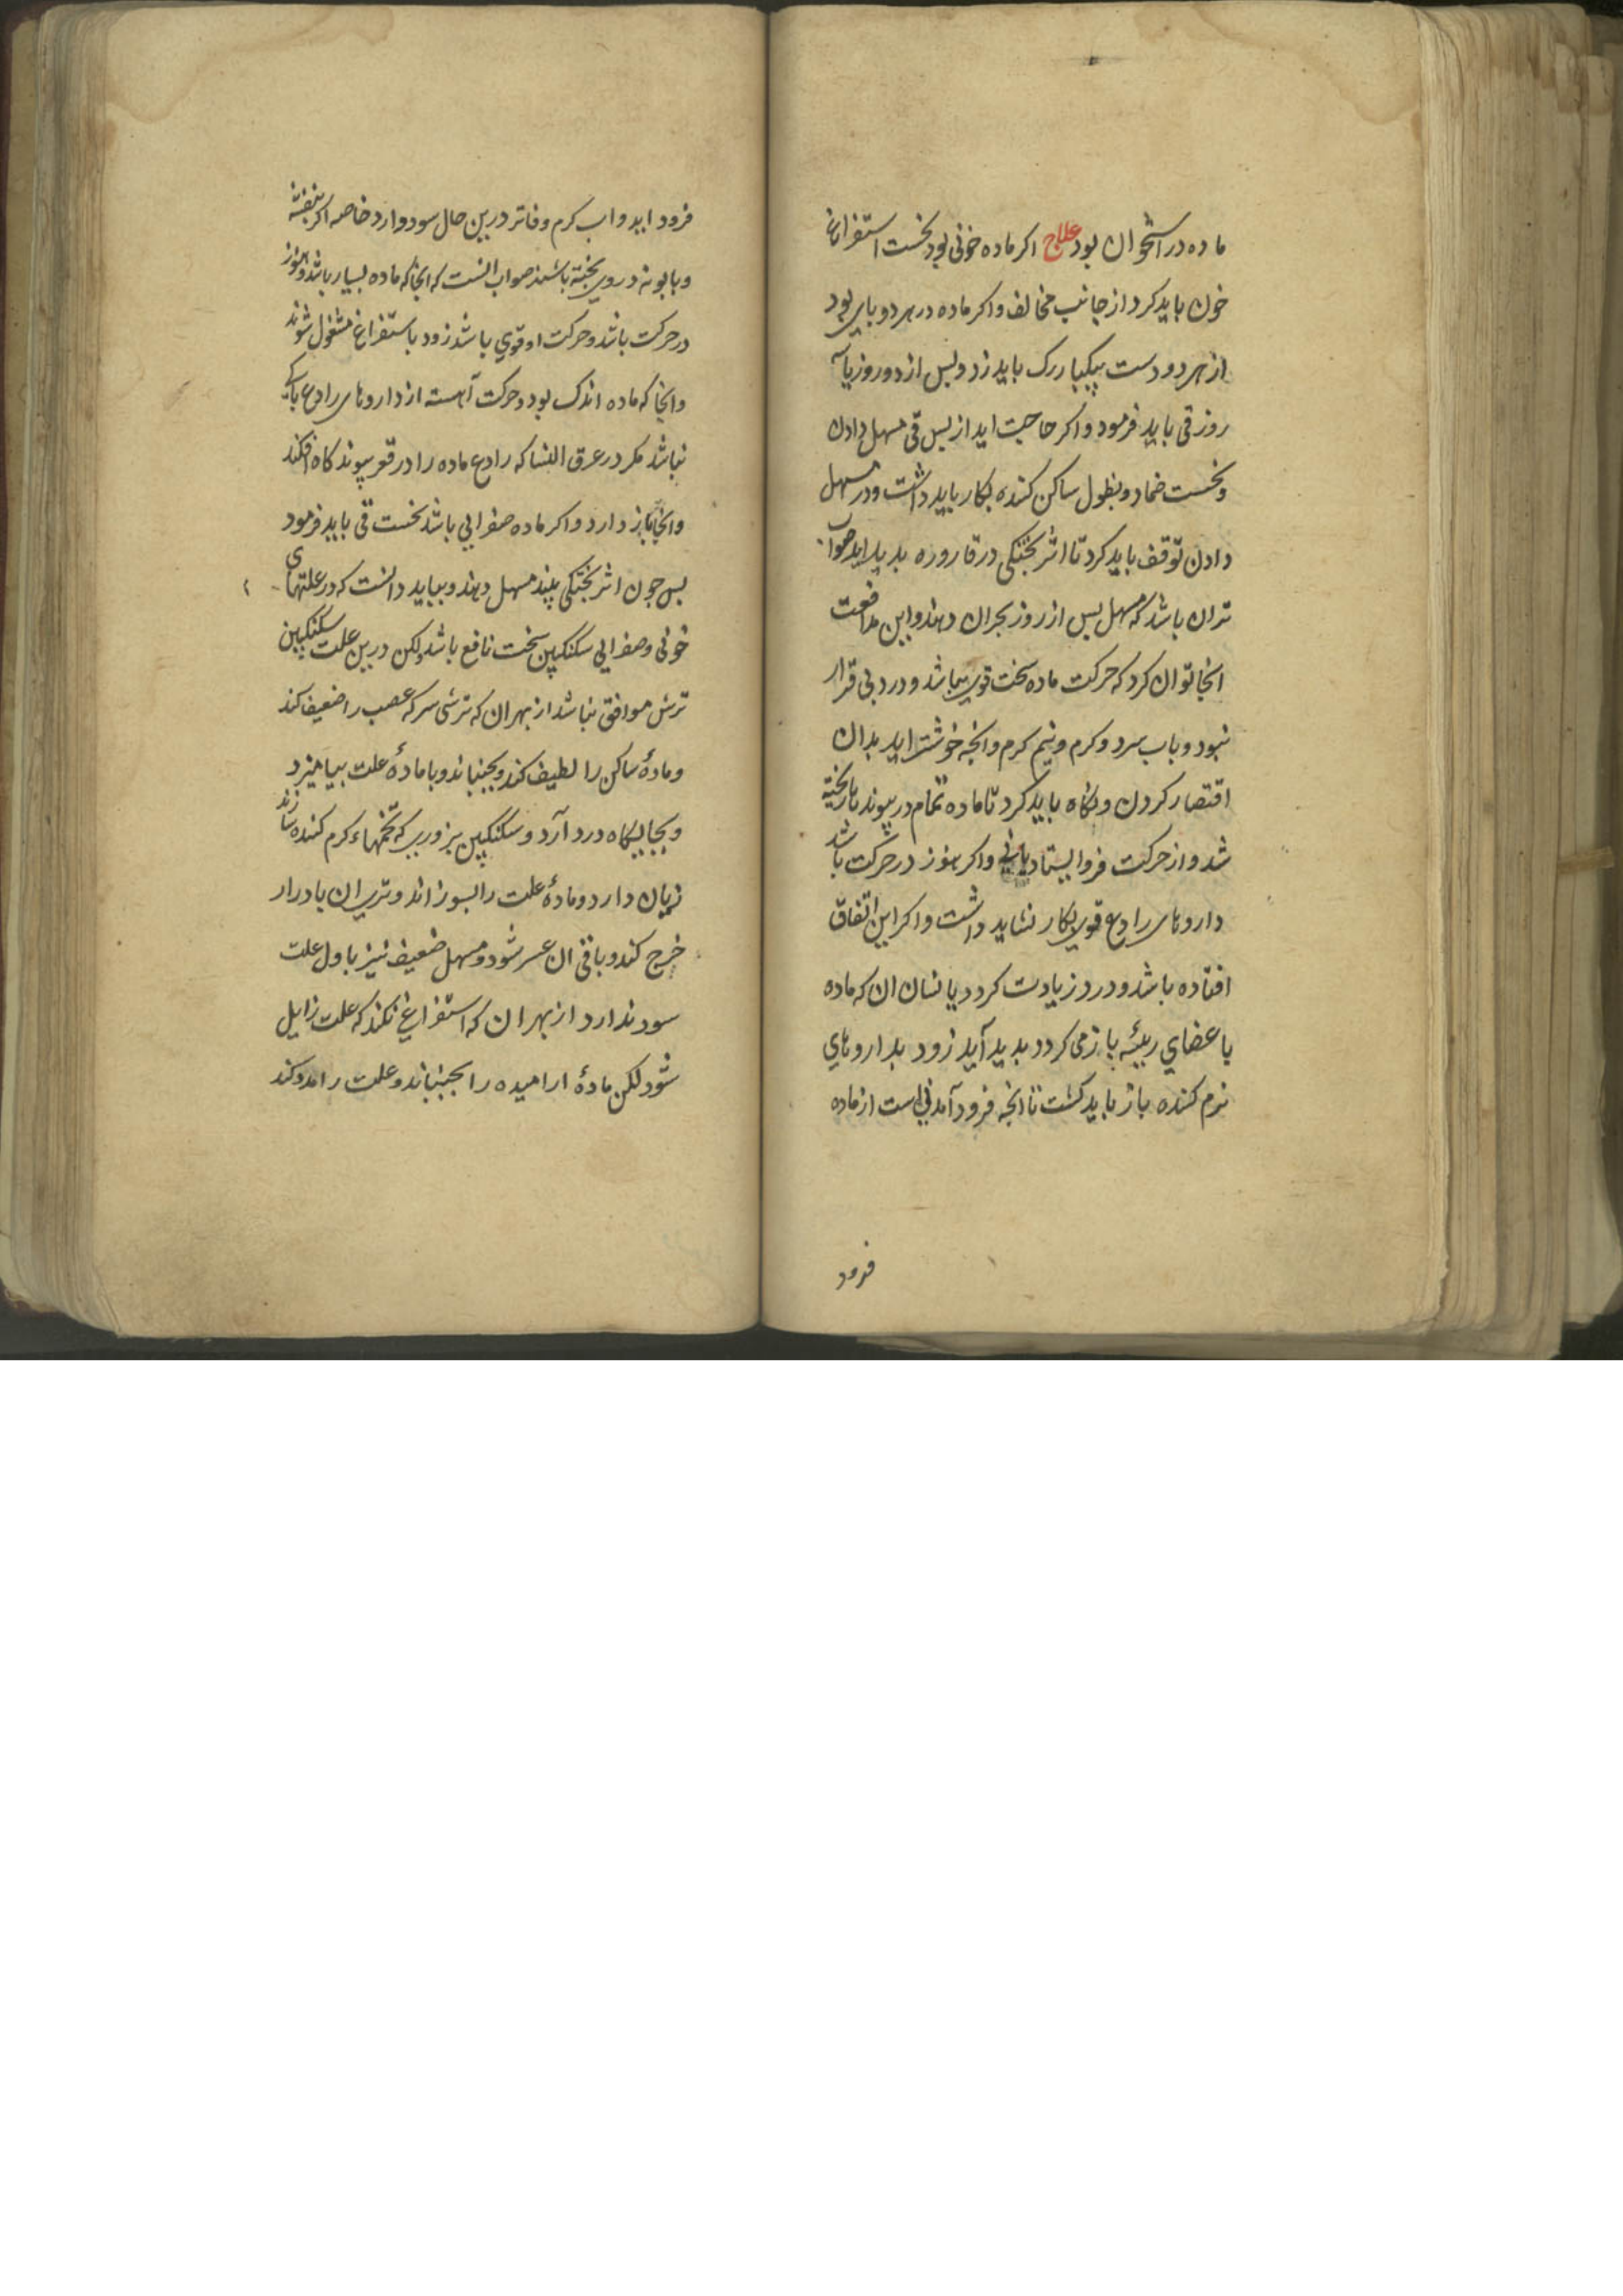 ماده در استخوان بود علاج اکر ماده خونی بود نخست استفراغ
خون باید کرد از جانب مخالف و اکر ماده در هر دو پای بود
از هر دو دست بیکبار رک باید زد و پس از دو روز یا سه
روز قی باید فرمود و اکر حاجت اید از پس قی مسهل دادن
و نخست ضماد و نطول ساکن کننده بکار باید داشت و در مسهل
دادن توقف باید کرد تا اثر پختکی در قاروره بدید اید صواب
تر ان باشد که مسهل پس از روز بحران دهند و این مدافعت
انجا توان کرد که حرکت ماده سخت قوی نباشد و درد بی قرار
نبود و باب سرد و کرم و نیم کرم و انچه خوشتر اید بدان
اقتصار کردن و نکاه باید کرد تا ماده تمام در پیوندها ریخته
شد و از حرکت فرو ایستاد یا نی و اکر هنوز در حرکت باشد
داروهای رادع قوی بکار نشاید داشت و اکر این اتفاق
افتاده باشد و درد زیادت کردد یا نشان ان که ماده
باعضای رییسه باز می کردد بدید آید زود بداروهای
نرم کننده باز باید کشت تا انچه فرود آمدنی است از ماده
فرود
فرود اید و اب کرم و فاتر درین حال سود دارد خاصه اکر بنفشه
و بابونه در وی پخته باشند صواب انست که انجا که ماده بسیار باشد و هنوز
در حرکت باشد و حرکت او قوی باشد زود باستفراغ مشغول شوند
و انجا که ماده اندک بود و حرکت آهسته از داروهای رادع باکی
نباشد مکر در عرق النسا که رادع ماده را در قعر پیوند کاه افکند
و انجا باز دارد و اکر ماده صفرایی باشد نخست قی باید فرمود
پس چون اثر پختکی بیند مسهل دهند و بباید دانست که در علتهای
خونی و صفرایی سکنکبین سخت نافع باشد ولکن درین علت سکنکبین
ترش موافق نباشد از بهر ان که ترشی سرکه عصب را ضعیف کند
و مادهٔ ساکن را لطیف کند و بجنباند و با مادهٔ علت بیامیزد
و بجایکاه درد آرد و سکنکبین بزوری که تخمهاء کرم کننده سازند
زیان دارد و مادهٔ علت را بسوزاند و تری ان بادرار
خرج کند و باقی ان عسر شود و مسهل ضعیف نیز باول علت
سود ندارد از بهر ان که استفراغی نکند که علت زایل
شود لکن مادهٔ ارامیده را بجنباند و علت را مدد کند